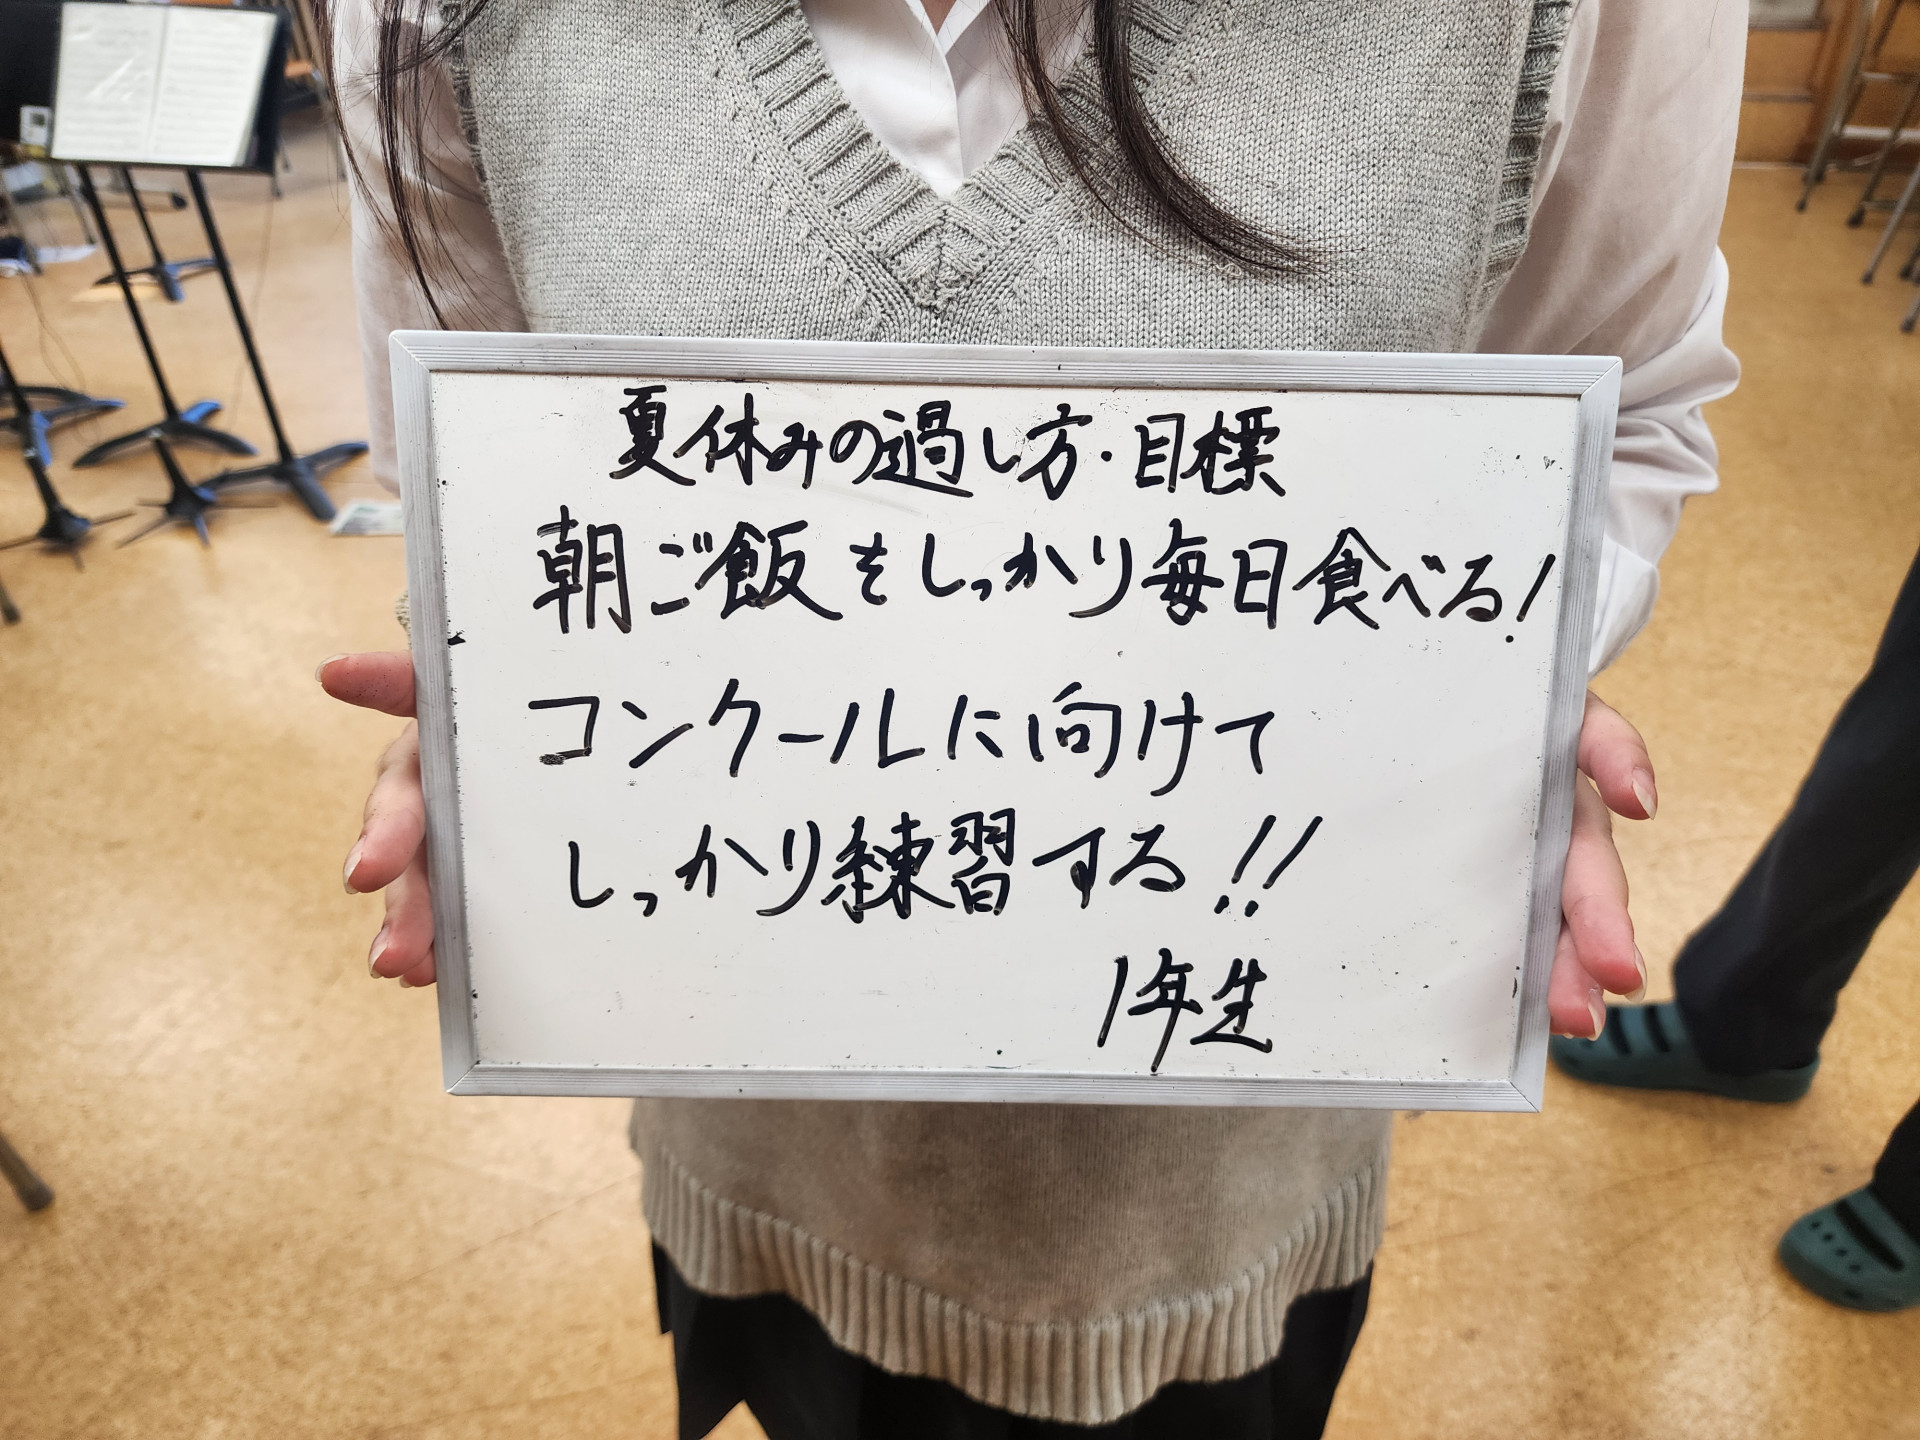 夏休みの過し方・目標
朝ご飯をしっかり毎日食べる!
コンクールに向けて
しっかり練習する!!
1年生